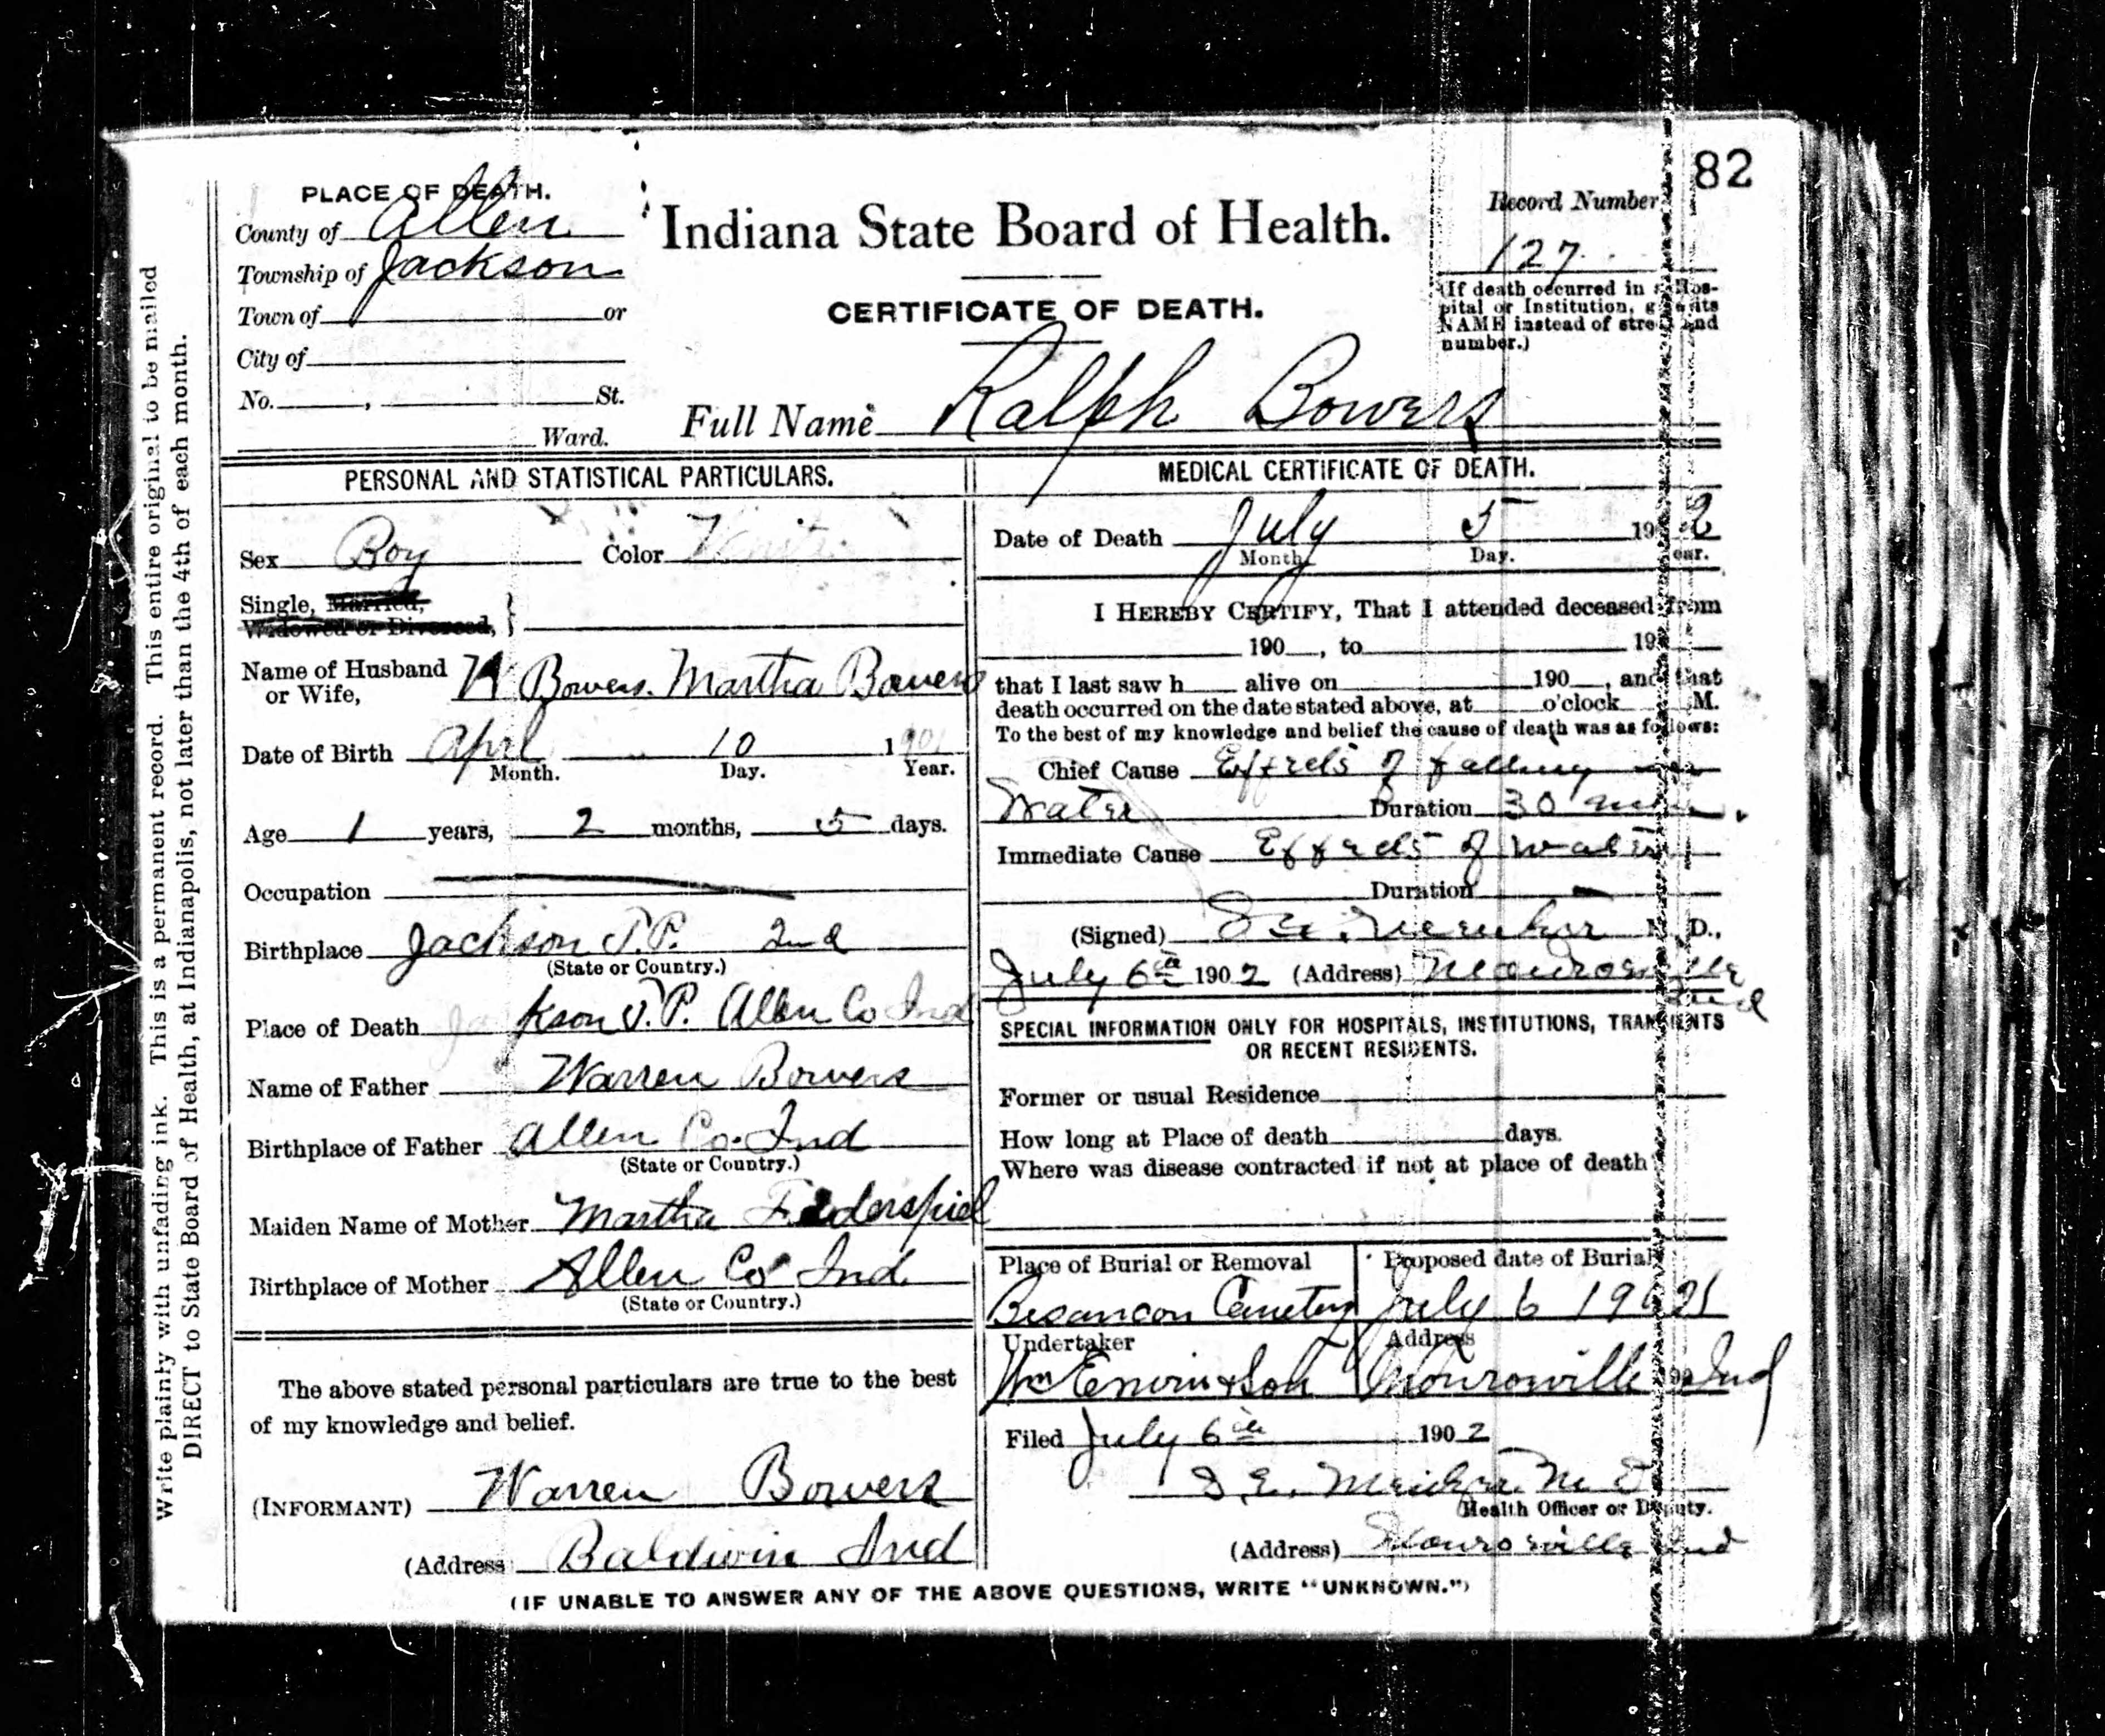 82
PLACE OF DEATH.
County of Allen
Township of Jackson
Town of or
City of
No. , St.
Ward.
Indiana State Board of Health.
CERTIFICATE OF DEATH.
Record Number
127
(If death occurred in a Hos-
pital or Institution, give its
NAME instead of street and
number.)
Full Name Ralph Bowers
Write plainly with unfading ink. This is a permanent record. This entire original to be mailed
DIRECT to State Board of Health, at Indianapolis, not later than the 4th of each month.
PERSONAL AND STATISTICAL PARTICULARS.
Sex Boy Color White
Single, Married,
Widowed or Divorced, }
Name of Husband
or Wife, W Bowers. Martha Bowers
Date of Birth April 10 1901
Month. Day. Year.
Age 1 years, 2 months, 5 days.
Occupation
Birthplace Jackson T.P. Ind
(State or Country.)
Place of Death Jackson T.P. Allen Co Ind
Name of Father Warren Bowers
Birthplace of Father Allen Co. Ind
(State or Country.)
Maiden Name of Mother Martha Federspiel
Birthplace of Mother Allen Co Ind.
(State or Country.)
The above stated personal particulars are true to the best
of my knowledge and belief.
(INFORMANT) Warren Bowers
(Address Baldwin Ind
MEDICAL CERTIFICATE OF DEATH.
Date of Death July 5 1902
Month Day. Year.
I HEREBY CERTIFY, That I attended deceased from
190 , to 19
that I last saw h alive on 190 , and that
death occurred on the date stated above, at o'clock M.
To the best of my knowledge and belief the cause of death was as follows:
Chief Cause Effects of falling
Water Duration 30 min.
Immediate Cause Effects of water
Duration
(Signed) M. D.,
July 6th 1902 (Address) Monroeville
Ind
SPECIAL INFORMATION ONLY FOR HOSPITALS, INSTITUTIONS, TRANSIENTS
OR RECENT RESIDENTS.
Former or usual Residence
How long at Place of death days.
Where was disease contracted if not at place of death?
Place of Burial or Removal
Besancon Cemetery
Proposed date of Burial
July 6 1902
Undertaker
Wm Erwin & Son
Address
Monroeville Ind
Filed July 6th 1902
S. E. M. D.
Health Officer or Deputy.
(Address) Monroeville Ind
(IF UNABLE TO ANSWER ANY OF THE ABOVE QUESTIONS, WRITE "UNKNOWN.")